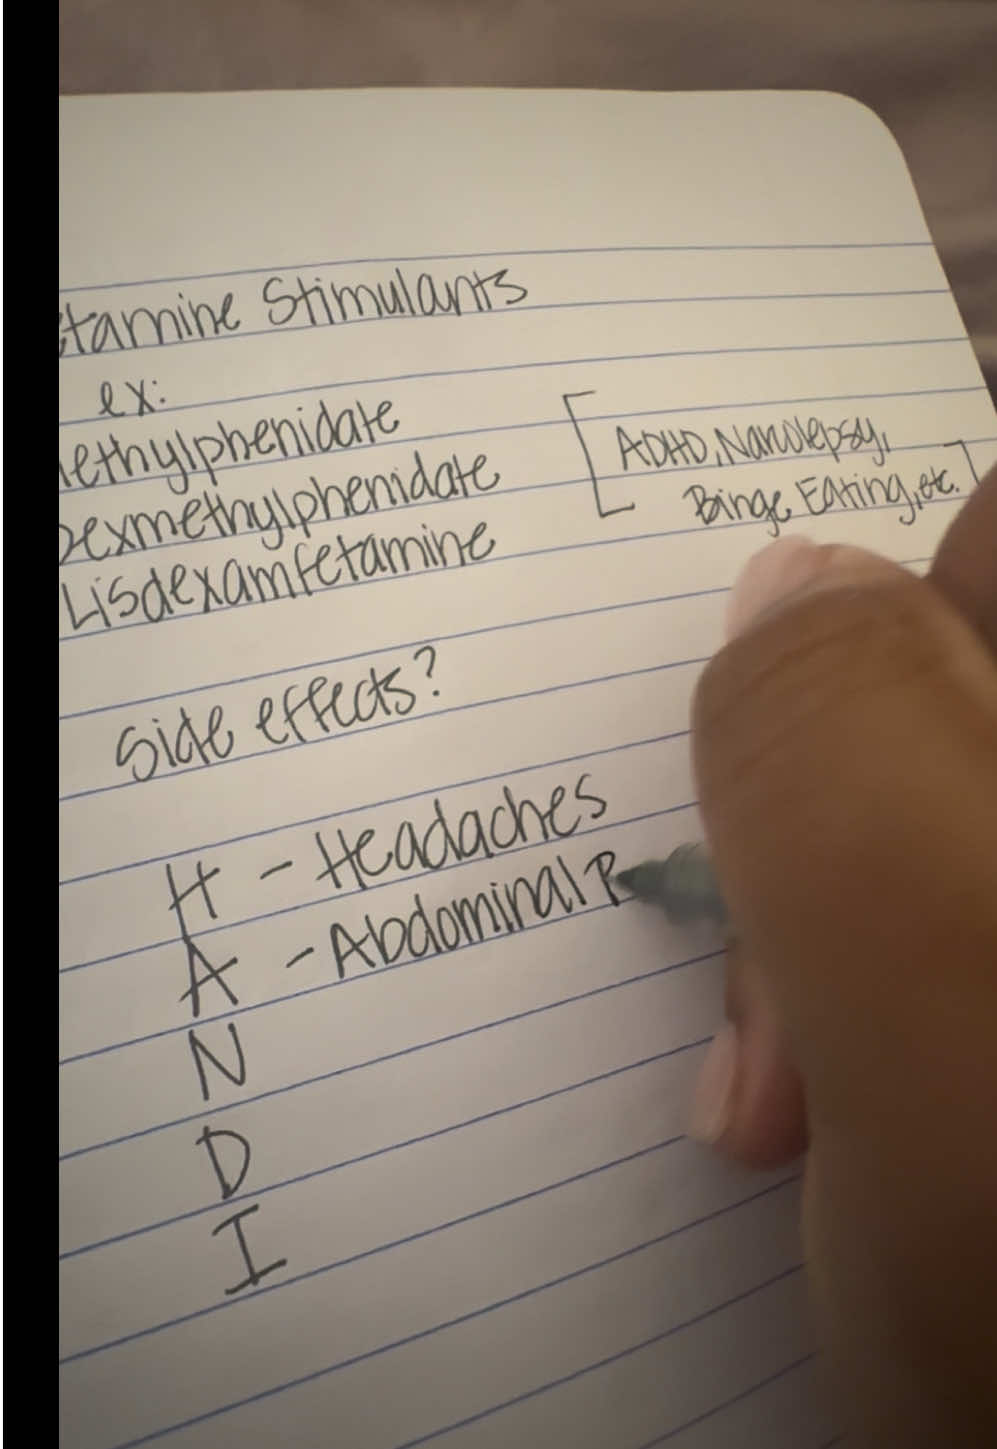 tamine Stimulants
ex:
ethylphenidate
Dexmethylphenidate
Lisdexamfetamine
[ADHD, Narcolepsy,
Binge Eating, etc.]
Side effects?
H - Headaches
A - Abdominal P
N
D
I